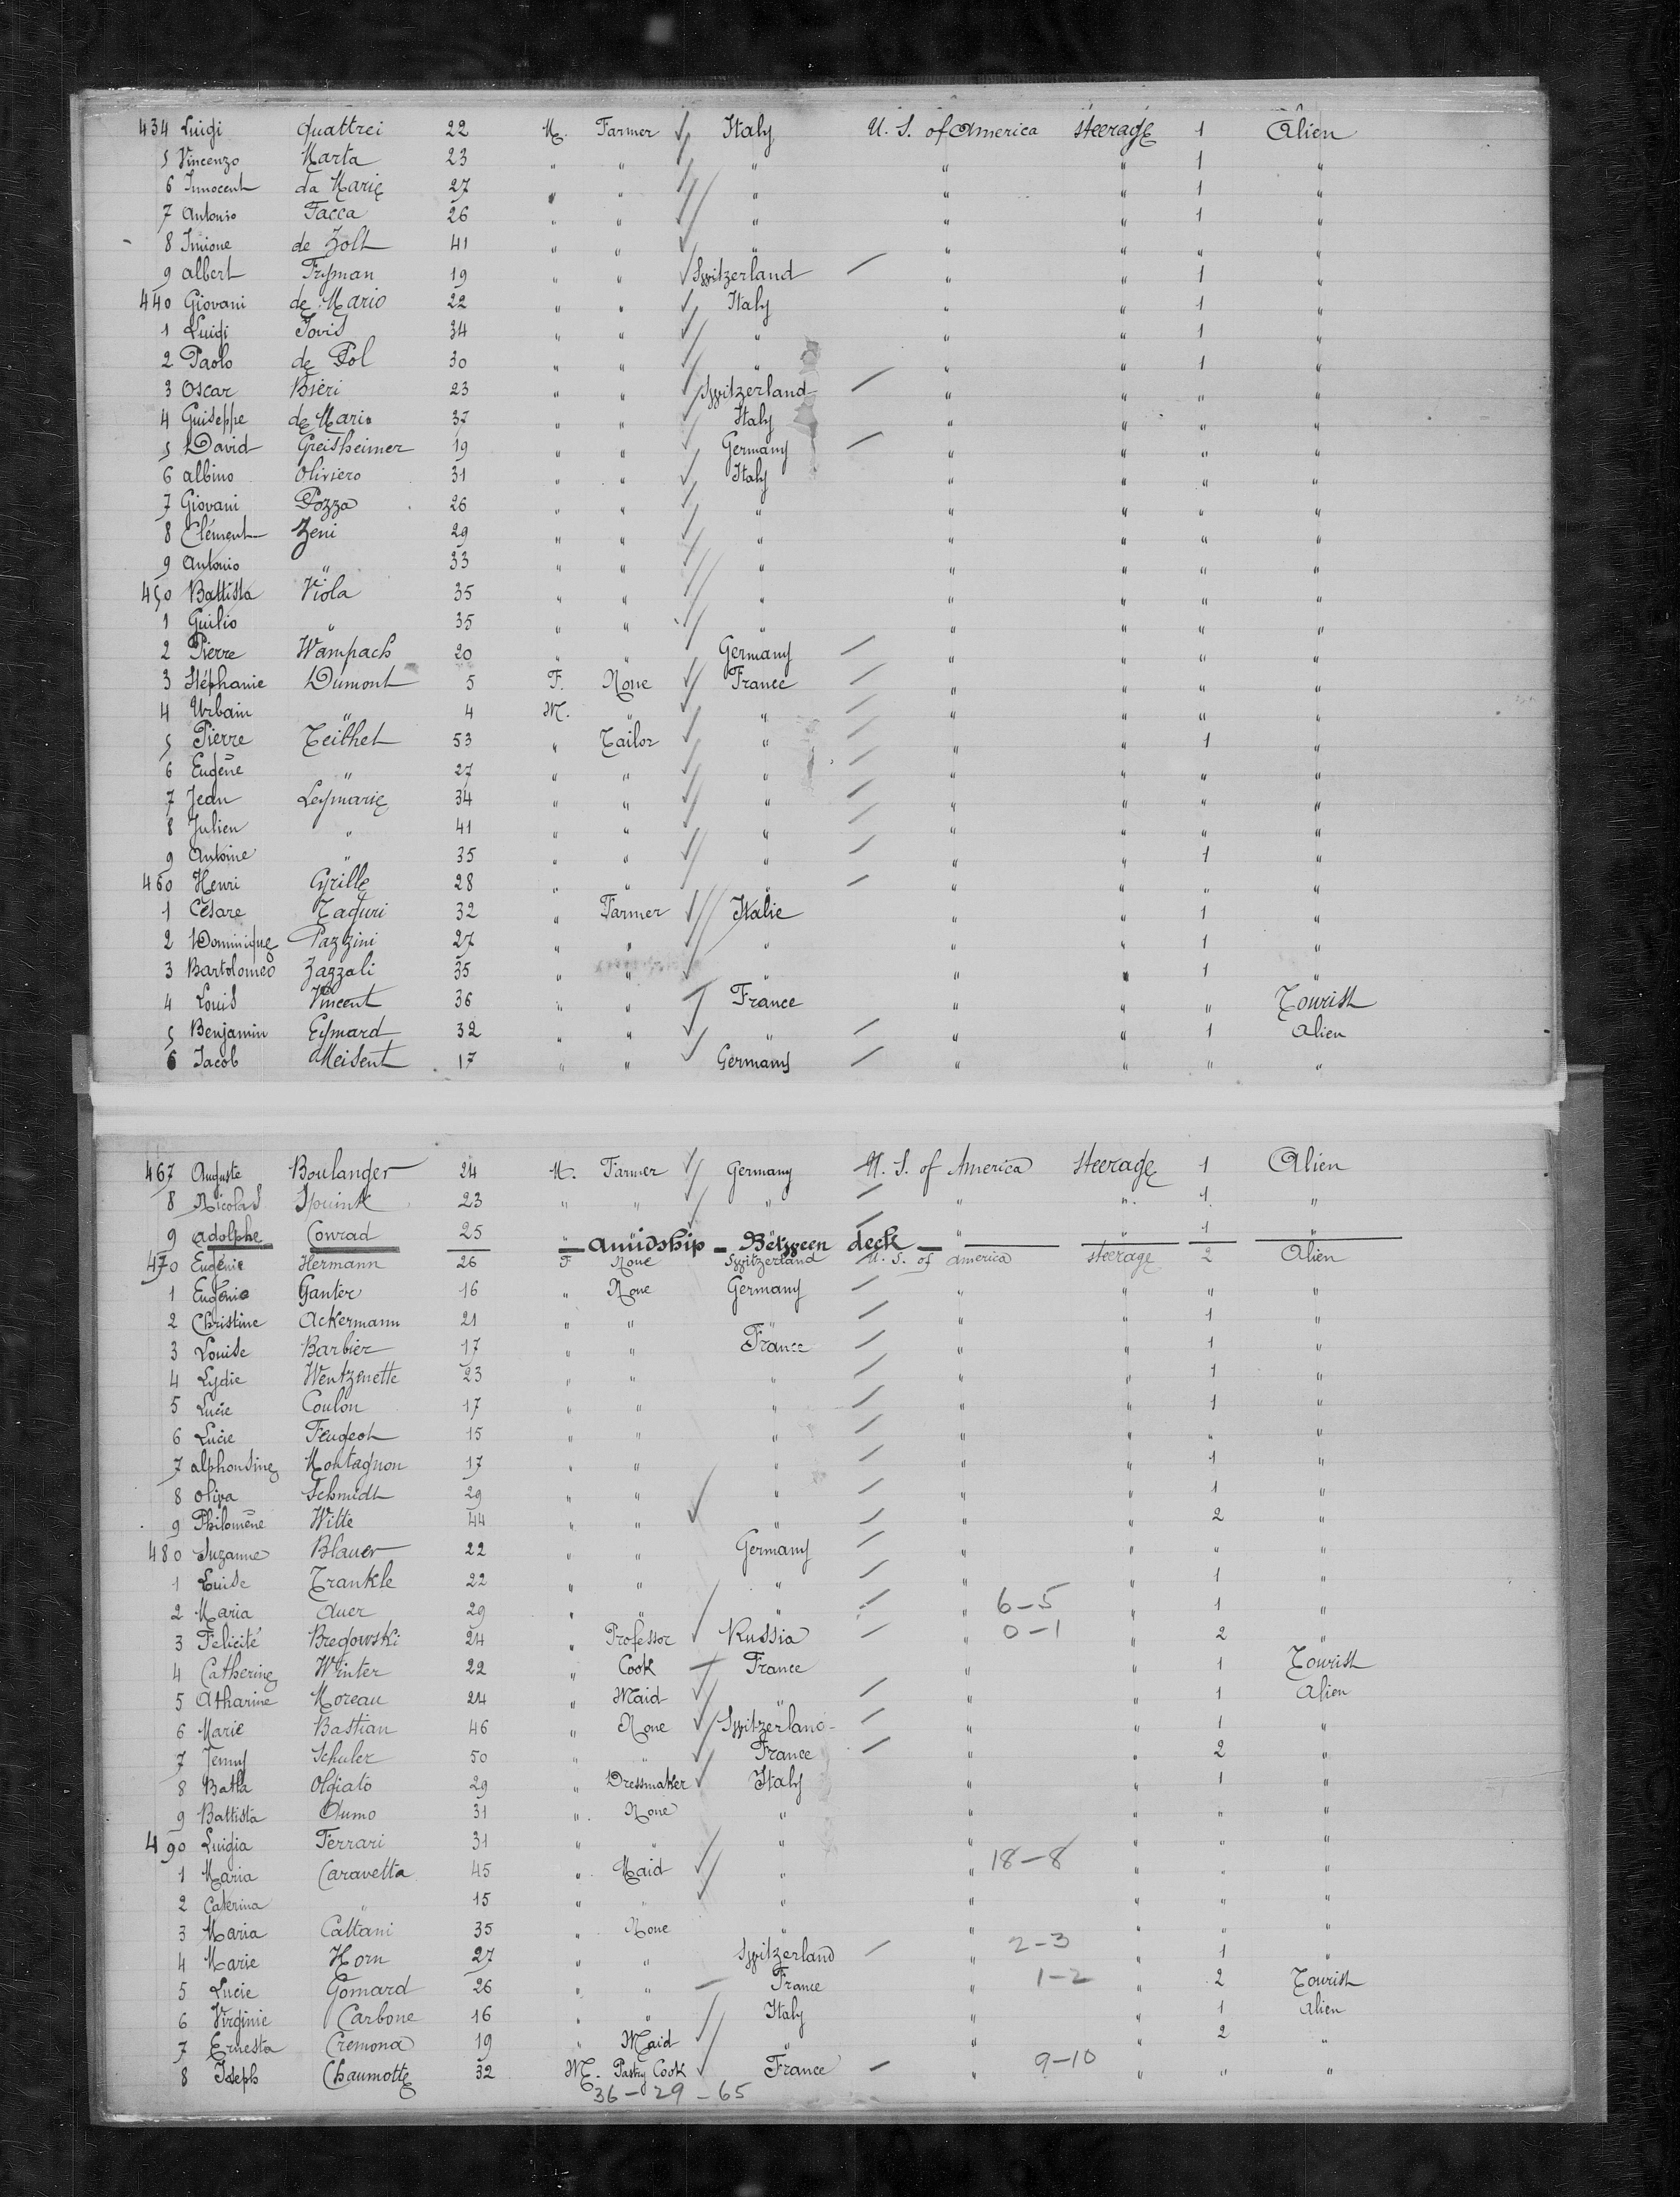 434 Luigi Quattrei 22 M. Farmer Italy U. S. of America steerage 1 Alien
5 Vincenzo Marta 23 " " " " " 1 "
6 Innocent da Marie 27 " " " " " 1 "
7 Antonio Facca 26 " " " " " 1 "
8 Simone de Zolt 41 " " " " " " "
9 Albert Frysman 19 " " Switzerland " " 1 "
440 Giovani de Mario 22 " " Italy " " 1 "
1 Luigi Jovis 34 " " " " " 1 "
2 Paolo de Pol 30 " " " " " 1 "
3 Oscar Biéri 23 " " Switzerland " " " "
4 Guiseppe de Mario 37 " " Italy " " " "
5 David Greisheimer 19 " " Germany " " " "
6 Albino Oliviero 31 " " Italy " " " "
7 Giovani Pozza 26 " " " " " " "
8 Clément Zeni 29 " " " " " " "
9 Antonio " 33 " " " " " " "
450 Battista Viola 35 " " " " " " "
1 Guilio " 35 " " " " " " "
2 Pierre Wampach 20 " " Germany " " " "
3 Stéphanie Dumont 5 F. None France " " " "
4 Urbain " 4 M. " " " " " "
5 Pierre Teithet 53 " Tailor " " " 1 "
6 Eugène " 27 " " " " " " "
7 Jean Leymarie 34 " " " " " " "
8 Julien " 41 " " " " " " "
9 Antoine " 35 " " " " " 1 "
460 Henri Cyrille 28 " " " " " " "
1 Césare Taguri 32 " Farmer Italie " " 1 "
2 Dominique Pazzini 27 " " " " " 1 "
3 Bartolomeo Zazzali 35 " " " " " 1 "
4 Louis Vincent 36 " " France " " " Tourist
5 Benjamin Eymard 32 " " " " " 1 Alien
6 Jacob Meisent 17 " " Germany " " " "
467 Auguste Boulanger 24 M. Farmer Germany U. S. of America steerage 1 Alien
8 Nicolas Spuink 23 " " " " " 1 "
9 Adolphe Conrad 25 " " " 1 "
Amidship - Between deck
470 Eugénie Hermann 26 F None Switzerland U. S. of America steerage 2 Alien
1 Eugénie Ganter 16 " None Germany " " " "
2 Christine Ackermann 21 " " " " " 1 "
3 Louise Barbier 17 " " France " " 1 "
4 Lydie Wentzenette 23 " " " " " 1 "
5 Lucie Coulon 17 " " " " " 1 "
6 Lucie Feugeot 15 " " " " " " "
7 Alphonsine Montagnon 17 " " " " " 1 "
8 Oliva Schmidt 29 " " " " " 1 "
9 Philomène Witte 44 " " " " " 2 "
480 Suzanne Blauer 22 " " Germany " " " "
1 Luise Trankle 22 " " " " " 1 "
2 Maria Auer 29 " " " " 6-5 " 1 "
3 Felicité Bregowski 24 " Professor Russia " 0-1 " 2 "
4 Catherine Winter 22 " Cook France " " 1 Tourist
5 Atharine Moreau 24 " Maid " " " 1 Alien
6 Marie Bastian 46 " None Switzerland " " 1 "
7 Jenny Schuler 50 " " France " " 2 "
8 Batta Olgiato 29 " Dressmaker Italy " " 1 "
9 Battista Dumo 31 " None " " " " "
490 Luigia Ferrari 31 " " " " " " "
1 Maria Caravetta 45 " Maid " " 18-8 " " "
2 Caterina " 15 " " " " " " "
3 Maria Cattani 35 " None " " " " "
4 Marie Horn 27 " " Switzerland " 2-3 " 1 "
5 Lucie Gomard 26 " " France " 1-2 " 2 Tourist
6 Virginie Carbone 16 " " Italy " " 1 Alien
7 Ernesta Cremona 19 " Maid " " " 2 "
8 Joseph Chaumotte 32 M. Pastry Cook France " 9-10 " " "
36-29-65